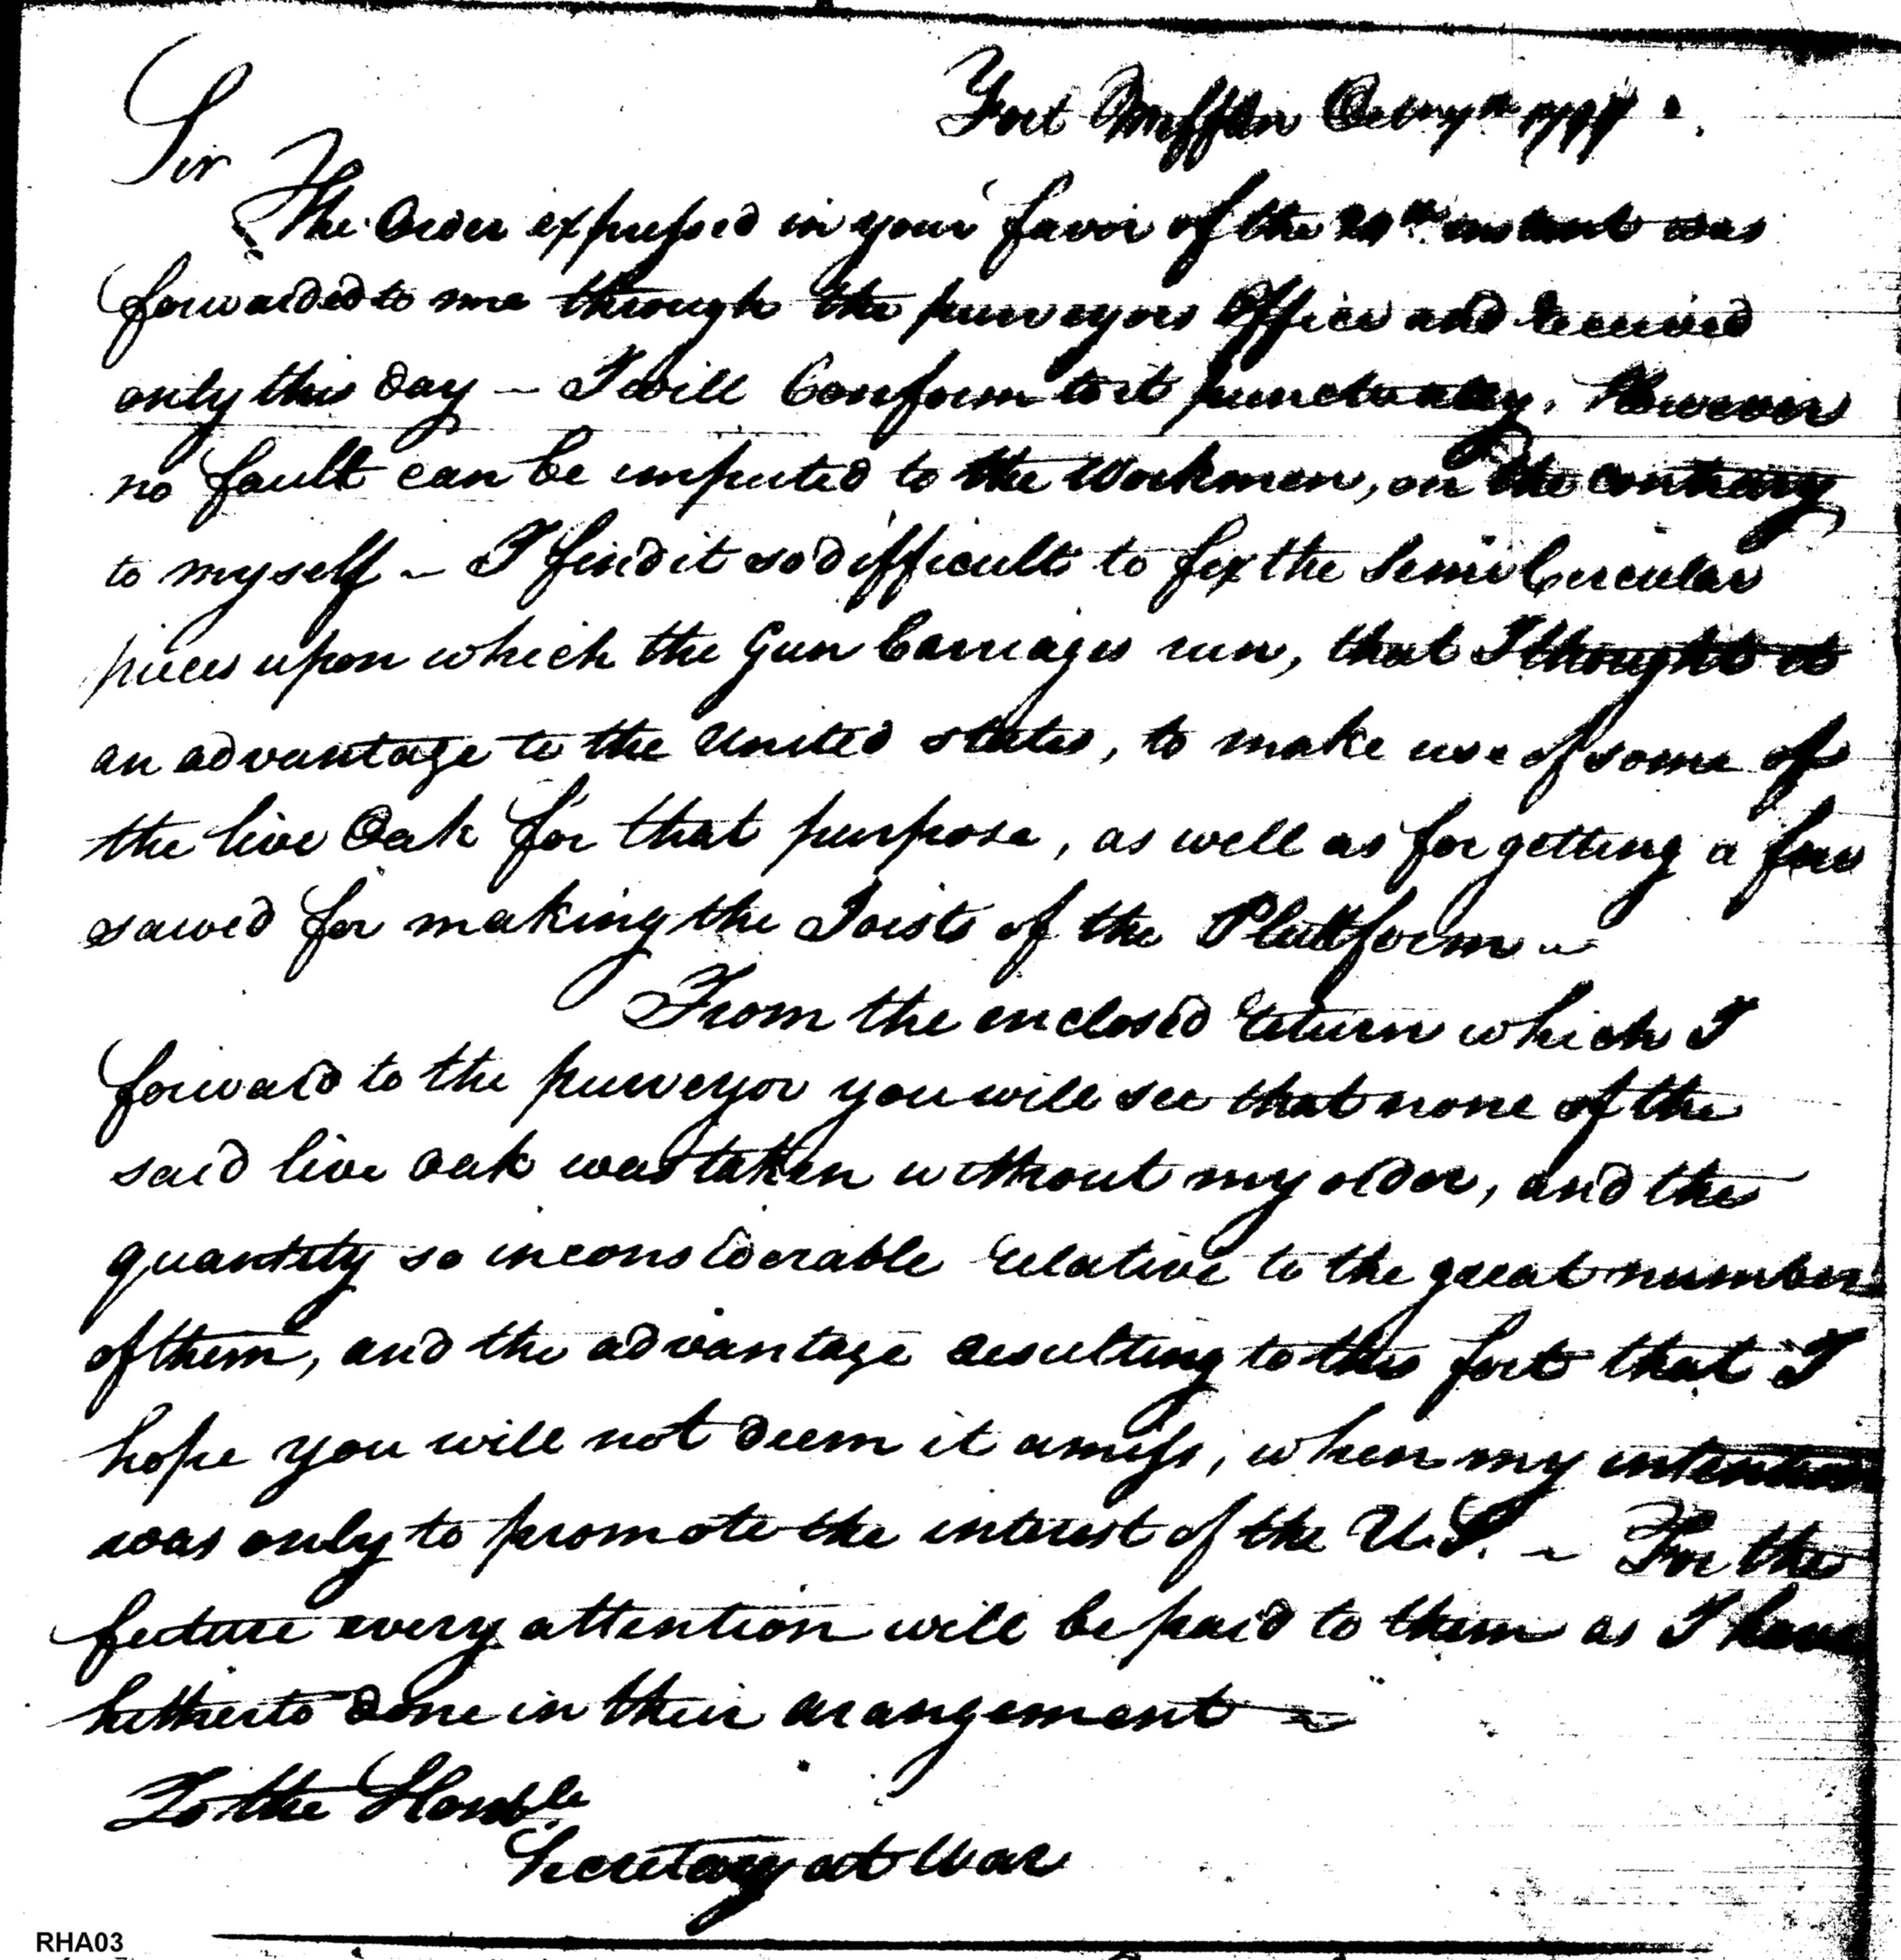 Fort Mifflin
Sir
The Order expressed in your favor of the instant was
forwarded to me through the purveyors Office and received
only this day – I will Conform to it punctually. However
no fault can be imputed to the Workmen, on the contrary
to myself – I find it so difficult to fix the Semi Circular
pieces upon which the Gun Carriages run, that I thought it
an advantage to the United states, to make use of some of
the live Oak for that purpose, as well as for getting a few
sawed for making the Joists of the Plattform –
From the enclosed return which I
forward to the purveyor you will see that none of the
said live oak was taken without my order, and the
quantity so inconsiderable relative to the great number
of them, and the advantage resulting to this fort that I
hope you will not deem it amiss, when my intention
was only to promote the interest of the U.S. – For the
future every attention will be paid to them as I have
hitherto done in their arangement –
To the Honble
Secretary at War
RHA03